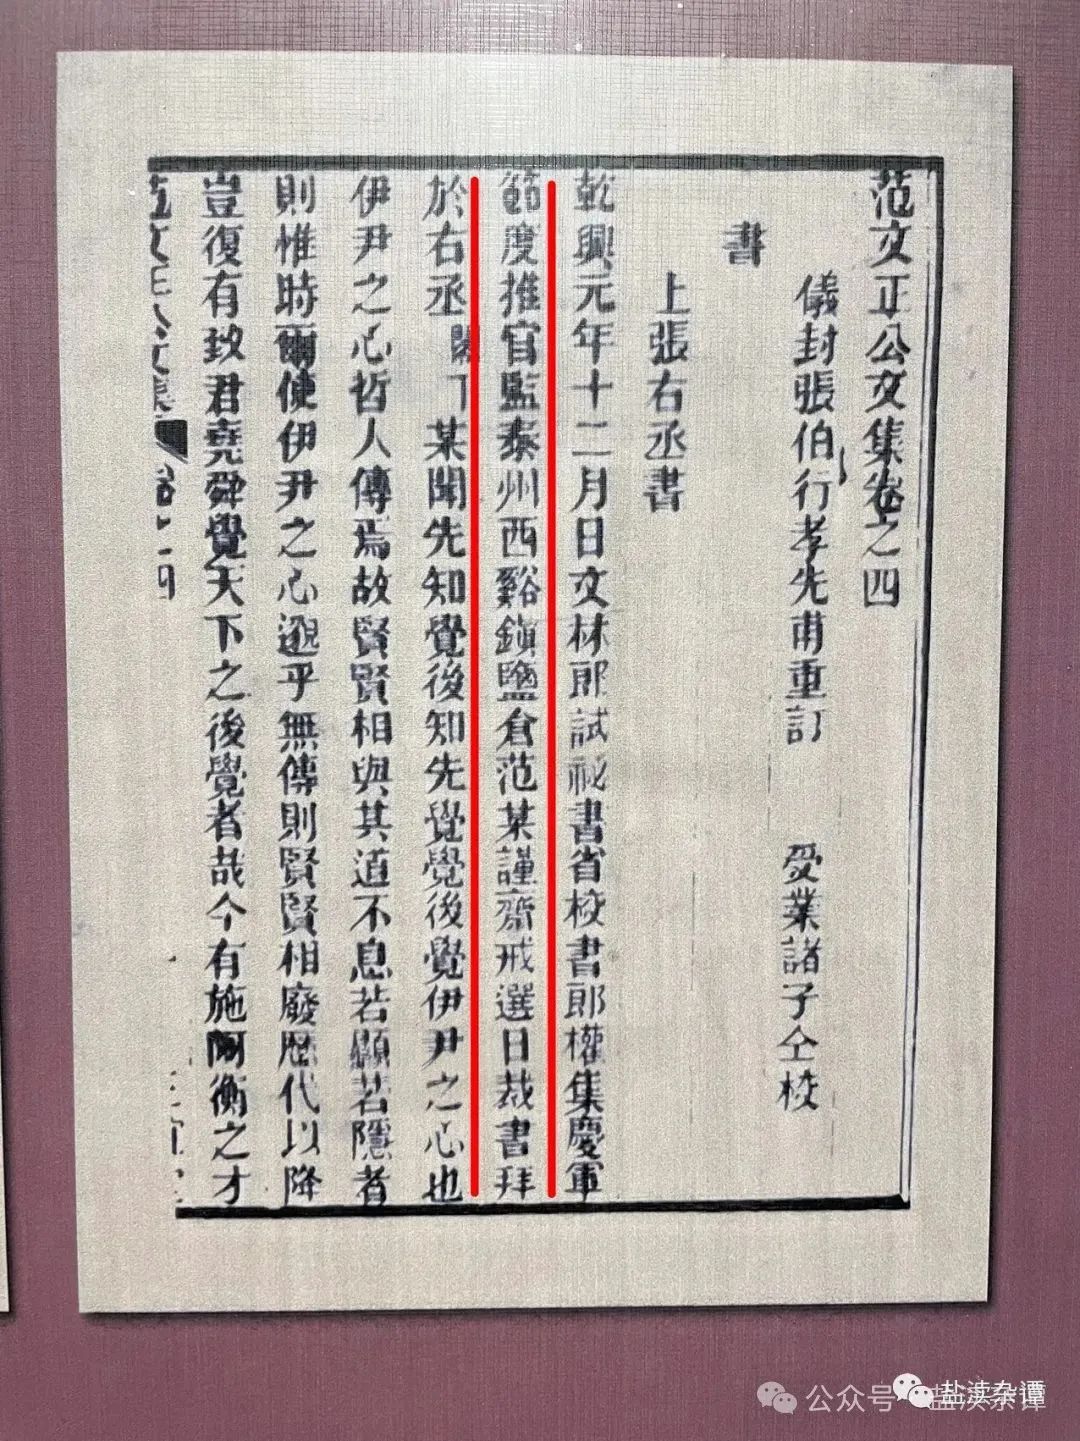 范文正公文集卷之四
儀封張伯行孝先甫重訂 受業諸子仝校
書
上張右丞書
乾興元年十二月日文林郎試祕書省校書郎權集慶軍
節度推官監泰州西谿鎮鹽倉范某謹齋戒選日裁書拜
於右丞閣下某聞先知覺後知先覺覺後覺伊尹之心也
伊尹之心哲人傳焉故賢賢相與其道不息若顯若隱者
則惟時爾使伊尹之心邈乎無傳則賢賢相廢歷代以降
豈復有致君堯舜覺天下之後覺者哉今有施阿衡之才
范文正公文集 卷之四
公众号·盐渎杂谭
盐渎杂谭